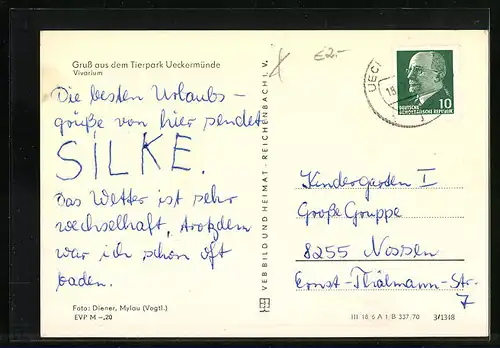 Gruß aus dem Tierpark Ueckermünde
Vivarium
Die besten Urlaubs-
grüße von hier sendet
SILKE.
Das Wetter ist sehr
wechselhaft, trotzdem
war ich schon oft
baden.
Foto: Diener, Mylau (Vogtl.)
EVP M -,20
VEB BILD UND HEIMAT · REICHENBACH I. V.
€2.-
UECK
DEUTSCHE
DEMOKRATISCHE REPUBLIK
10
Kindergarten I
Große Gruppe
8255 Nossen
Ernst-Thälmann-Str.
7
III 18 6 A 1 B 337/70 3/1318